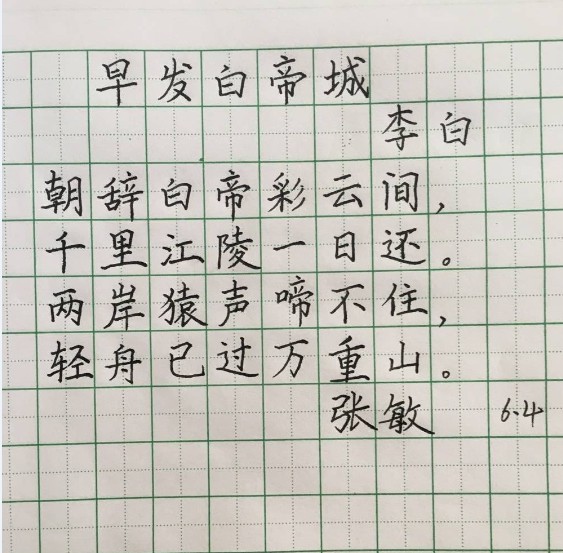 早发白帝城
李白
朝辞白帝彩云间,
千里江陵一日还。
两岸猿声啼不住,
轻舟已过万重山。
张敏 6.4